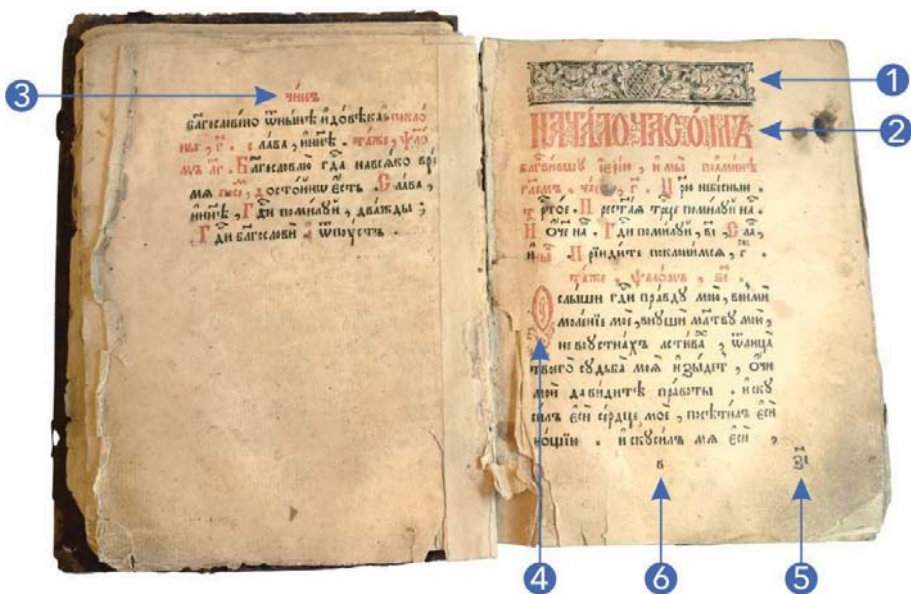 чи́нъ
бл҃гослове́но ѿны́нѣ и҆до́вѣка. покло́
ны̀, г҃. сла́ва, и҆нн҃ѣ. та́же, ѱало́
мъ лг҃. Бл҃гословлю̀ гдⷭ҇а навсѧ́ко врѐ
мѧ досто́йно є҆́сть. Сла́ва,
и҆нн҃ѣ, Гдⷭ҇и поми́лꙋй, два́жды;
Гдⷭ҇и бл҃гословѝ и҆ ѿпꙋ́стъ.
НАЧА́ЛО ЧАСО́МЪ
бл҃ги́вшꙋ і҆ере́ю, и҆мы̀
гл҃емъ, г҃. Цр҃ю̀ нбе́сныи.
трⷭ҇то́е. Прест҃а́ѧ трⷪ҇це поми́лꙋй на́.
Ѻ҆́ч҃е на́. Гдⷭ҇и поми́лꙋй, в҃і. Сла́,
и҆ны̀. Прїиди́те поклони́мсѧ, г҃.
та́же, ѱало́мъ, ѕ҃і.
Оу҆слы́ши гдⷭ҇и пра́вдꙋ мою̀, вонмѝ
моле́нїе моѐ, внꙋшѝ мл҃твꙋ мою̀,
невоꙋстна́хъ льсти́вахъ, ѿлица̀
твоегѡ̀ сꙋдьба̀ моѧ̀ и҆зы́детъ, ѻ҆́чи
моѝ дави́дитѣ пра́воты. и҆скꙋ
си́лъ є҆сѝ се́рдце моѐ, посѣти́лъ є҆сѝ
но́щїю. и҆скꙋси́лъ мѧ̀ є҆сѝ,
в
з҃і
1
2
3
4
5
6